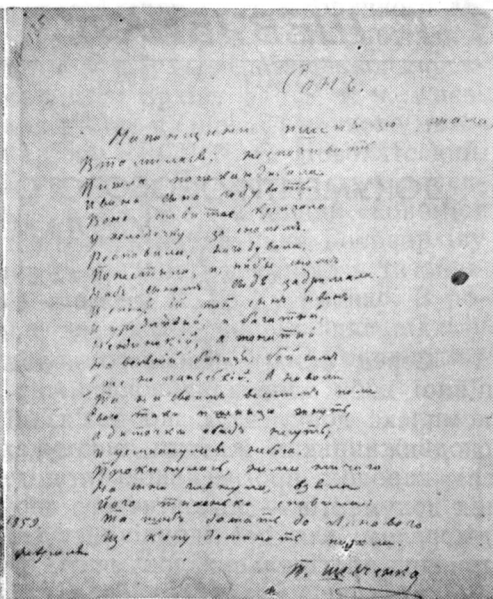 Сонъ.
На панщини пшеницю жала
Втомилася. неспочивать
Пишла пошкандибала
Ивана сина годувать.
Воно сповитее кричало
У холодочку за снопомъ.
Росповила, нагодувала,
Попестила, и, ниби сномъ
Надъ сыномъ сидя задримала.
И ій той сынъ Иванъ
И уродливый и богатый,
Неодинокій, а жонатый
На вольній бачиця бо й самъ
Уже не панській. А на воли
Та на своимъ веселимъ поли
Свою таки пшеницю жнуть,
А диточки обидъ несуть,
И усмихнулася небога.
Прокинулась, нема ничого
На глянула, взяла
Його тихенько сповила
Та щобъ дожать до ланового
Ще копу дожинать пишла.
1859.
февраль
Т. Шевченко